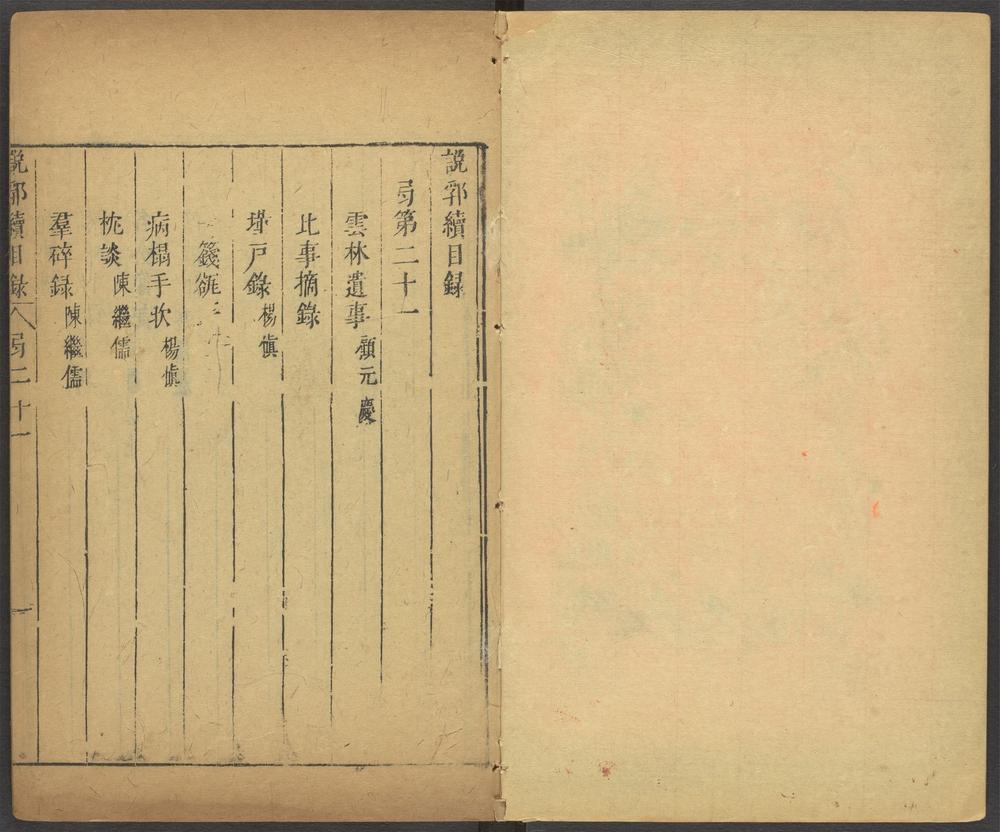 說郛續目録
弓第二十一
雲林遺事 顧元慶
比事摘錄
墐戶錄 楊慎
箋
病榻手欥 楊慎
枕談 陳繼儒
羣碎録 陳繼儒
說郛續目録 弓二十一 一